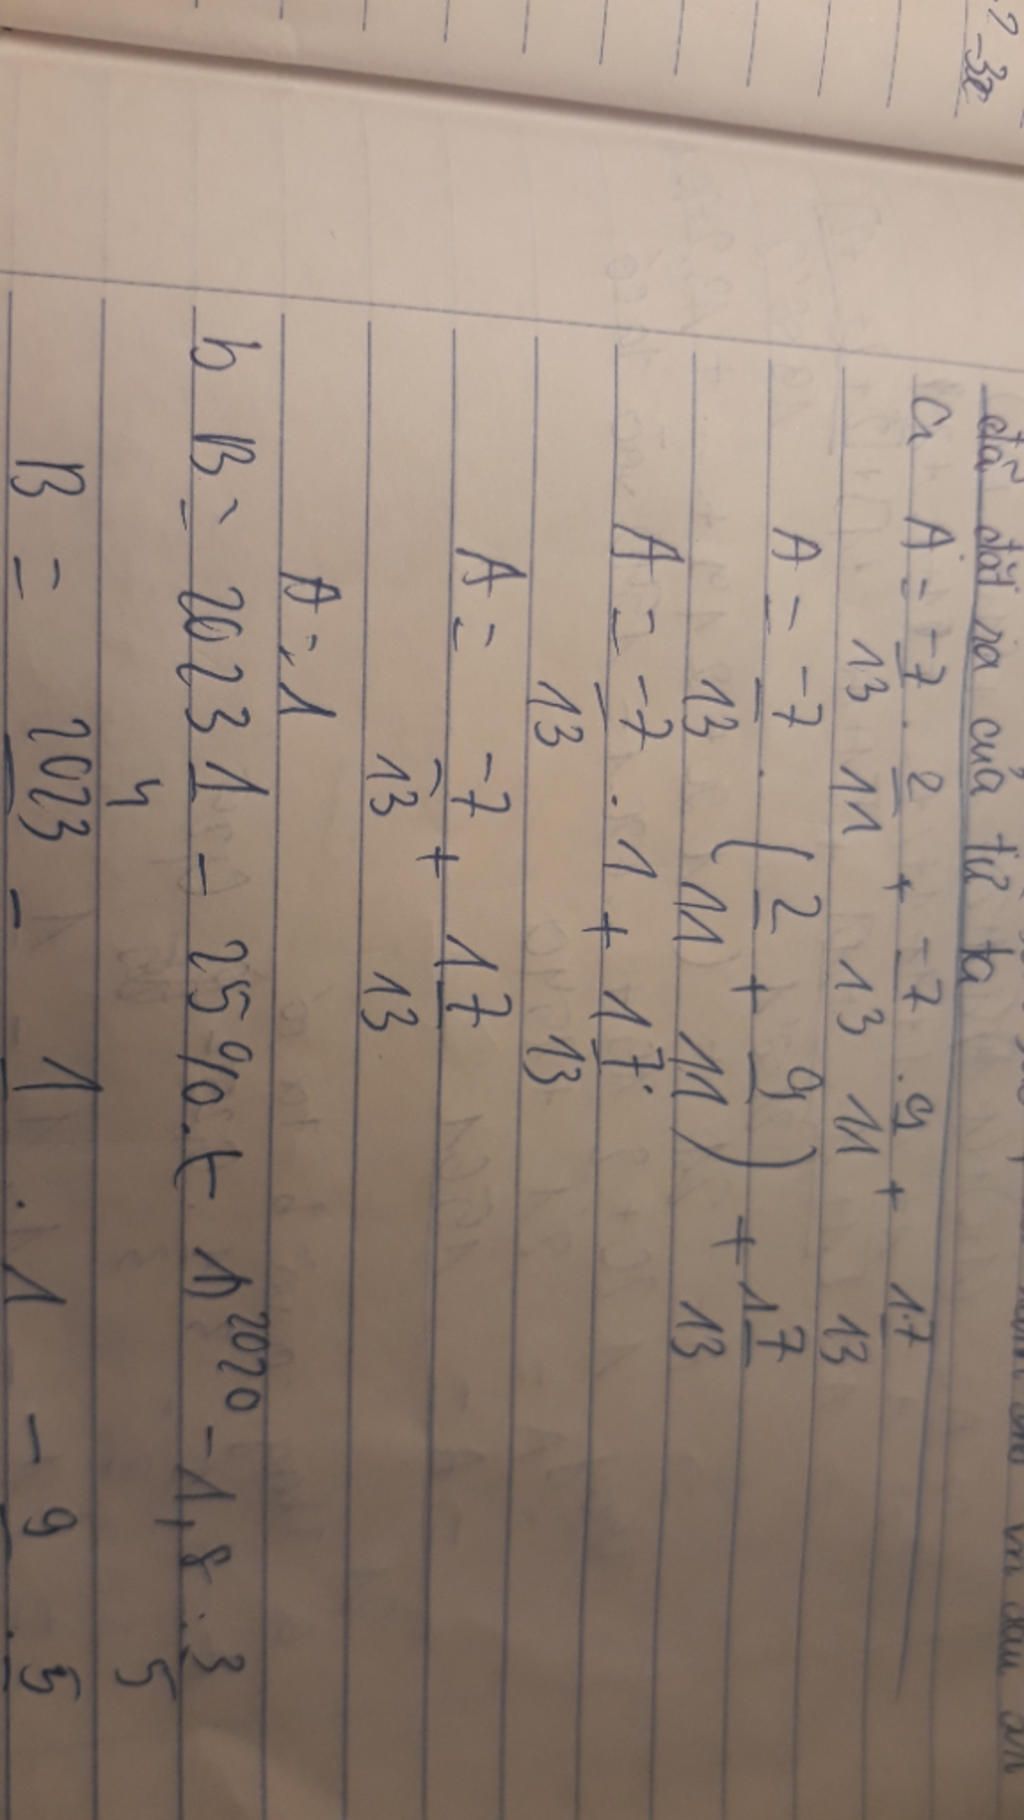 đã đặt ra của từ ta
a A = -7/13 . 2/11 + -7/13 . 9/11 + 17/13
A = -7/13 . (2/11 + 9/11) + 17/13
A = -7/13 . 1 + 17/13
A = -7/13 + 17/13
A = 1
b B = 2023 1/4 - 25% . (-1)²⁰²⁰ - 1,8 : 3/5
B = 2023 - 1 . 1 - 9 . 5